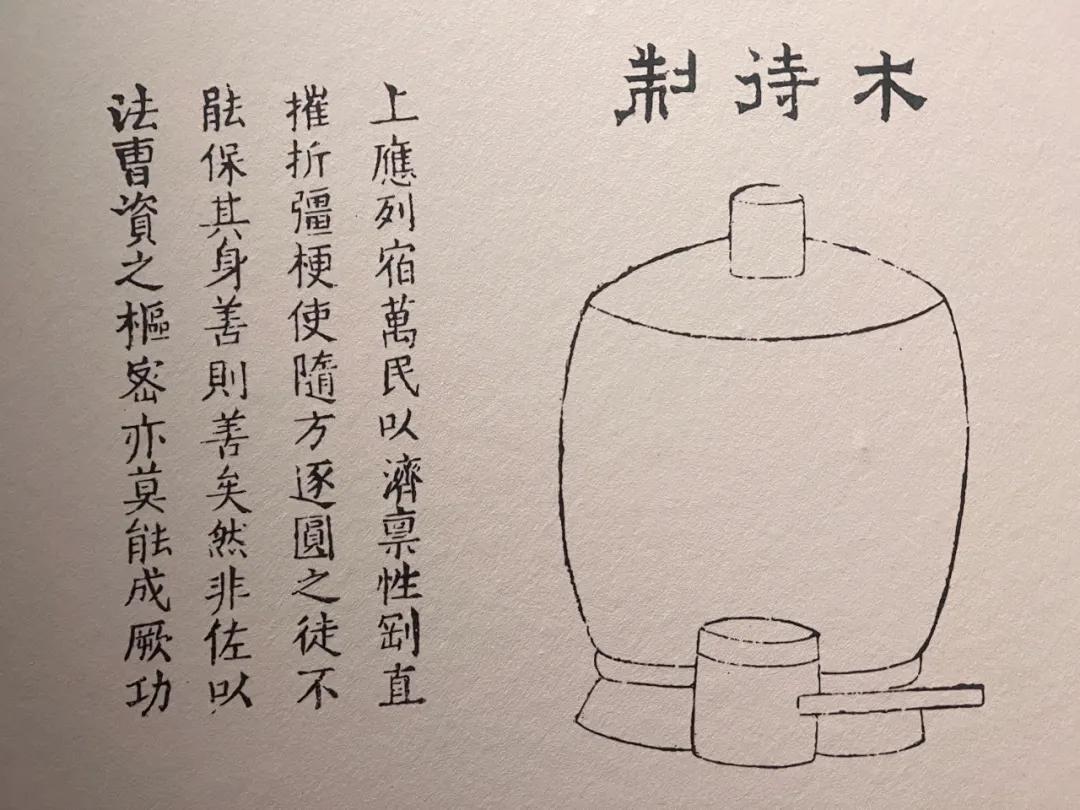 木待制
上應列宿萬民以濟禀性剛直
摧折彊梗使隨方逐圓之徒不
能保其身善則善矣然非佐以
法曹資之樞密亦莫能成厥功